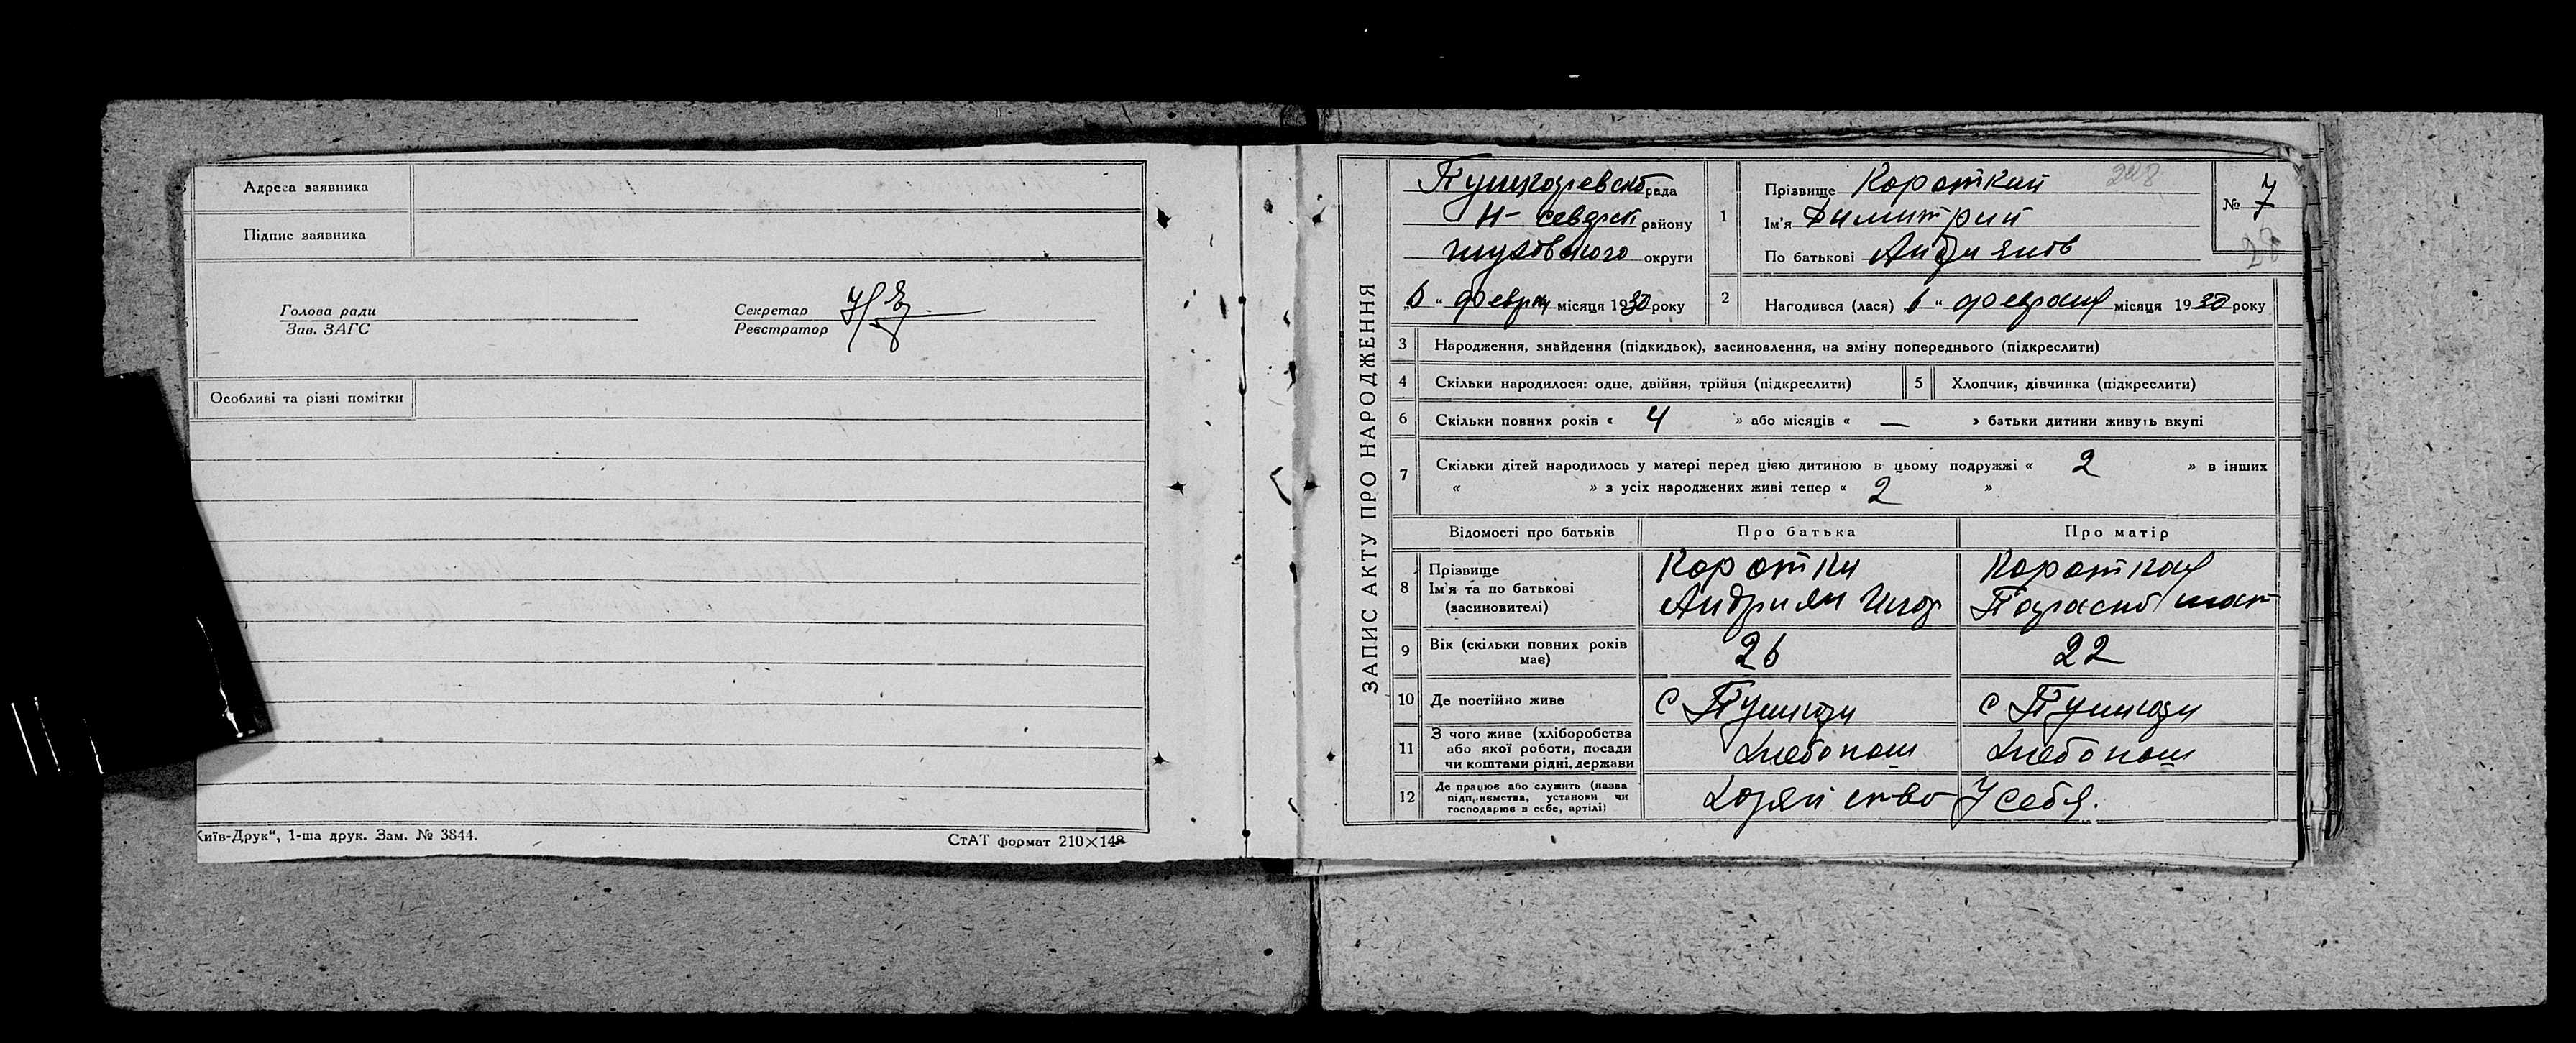 Адреса заявника
Підпис заявника
Голова ради
Зав. ЗАГС
Секретар
Реєстратор
Особливі та різні помітки
Київ-Друк“, 1-ша друк. Зам. № 3844.
СтАТ формат 210×148
ЗАПИС АКТУ ПРО НАРОДЖЕННЯ
рада
Н- севрск району
глуховского округи
6 “ феврал місяця 1930 року
1
Прізвище Короткий
228
Ім'я Димитрий
По батькові Андриянов
№ 7
28
2
Нагодився (лася) „6 “ февраля місяця 1930 року
3 Народження, знайдення (підкидьок), засиновлення, на зміну попереднього (підкреслити)
4 Скільки народилося: одне, двійня, трійня (підкреслити)
5 Хлопчик, дівчинка (підкреслити)
6 Скільки повних років « 4 » або місяців « — » батьки дитини живуть вкупі
7 Скільки дітей народилось у матері перед цією дитиною в цьому подружжі « 2 » в інших
« » з усіх народжених живі тепер « 2 »
Відомості про батьків
Про батька
Про матір
8
Прізвище
Ім'я та по батькові
(засновителі)
Коротки
Андриян
Короткая
9
Вік (скільки повних років
має)
26
22
10 Де постійно живе
с
с
11
З чого живе (хліборобства
або якої роботи, посади
чи коштами рідні, держави
Хлебопаш
Хлебопаш
12
Де працює або служить (назва
підприємства, установи чи
господарює в себе, артілі)
Хозяйство У себя.